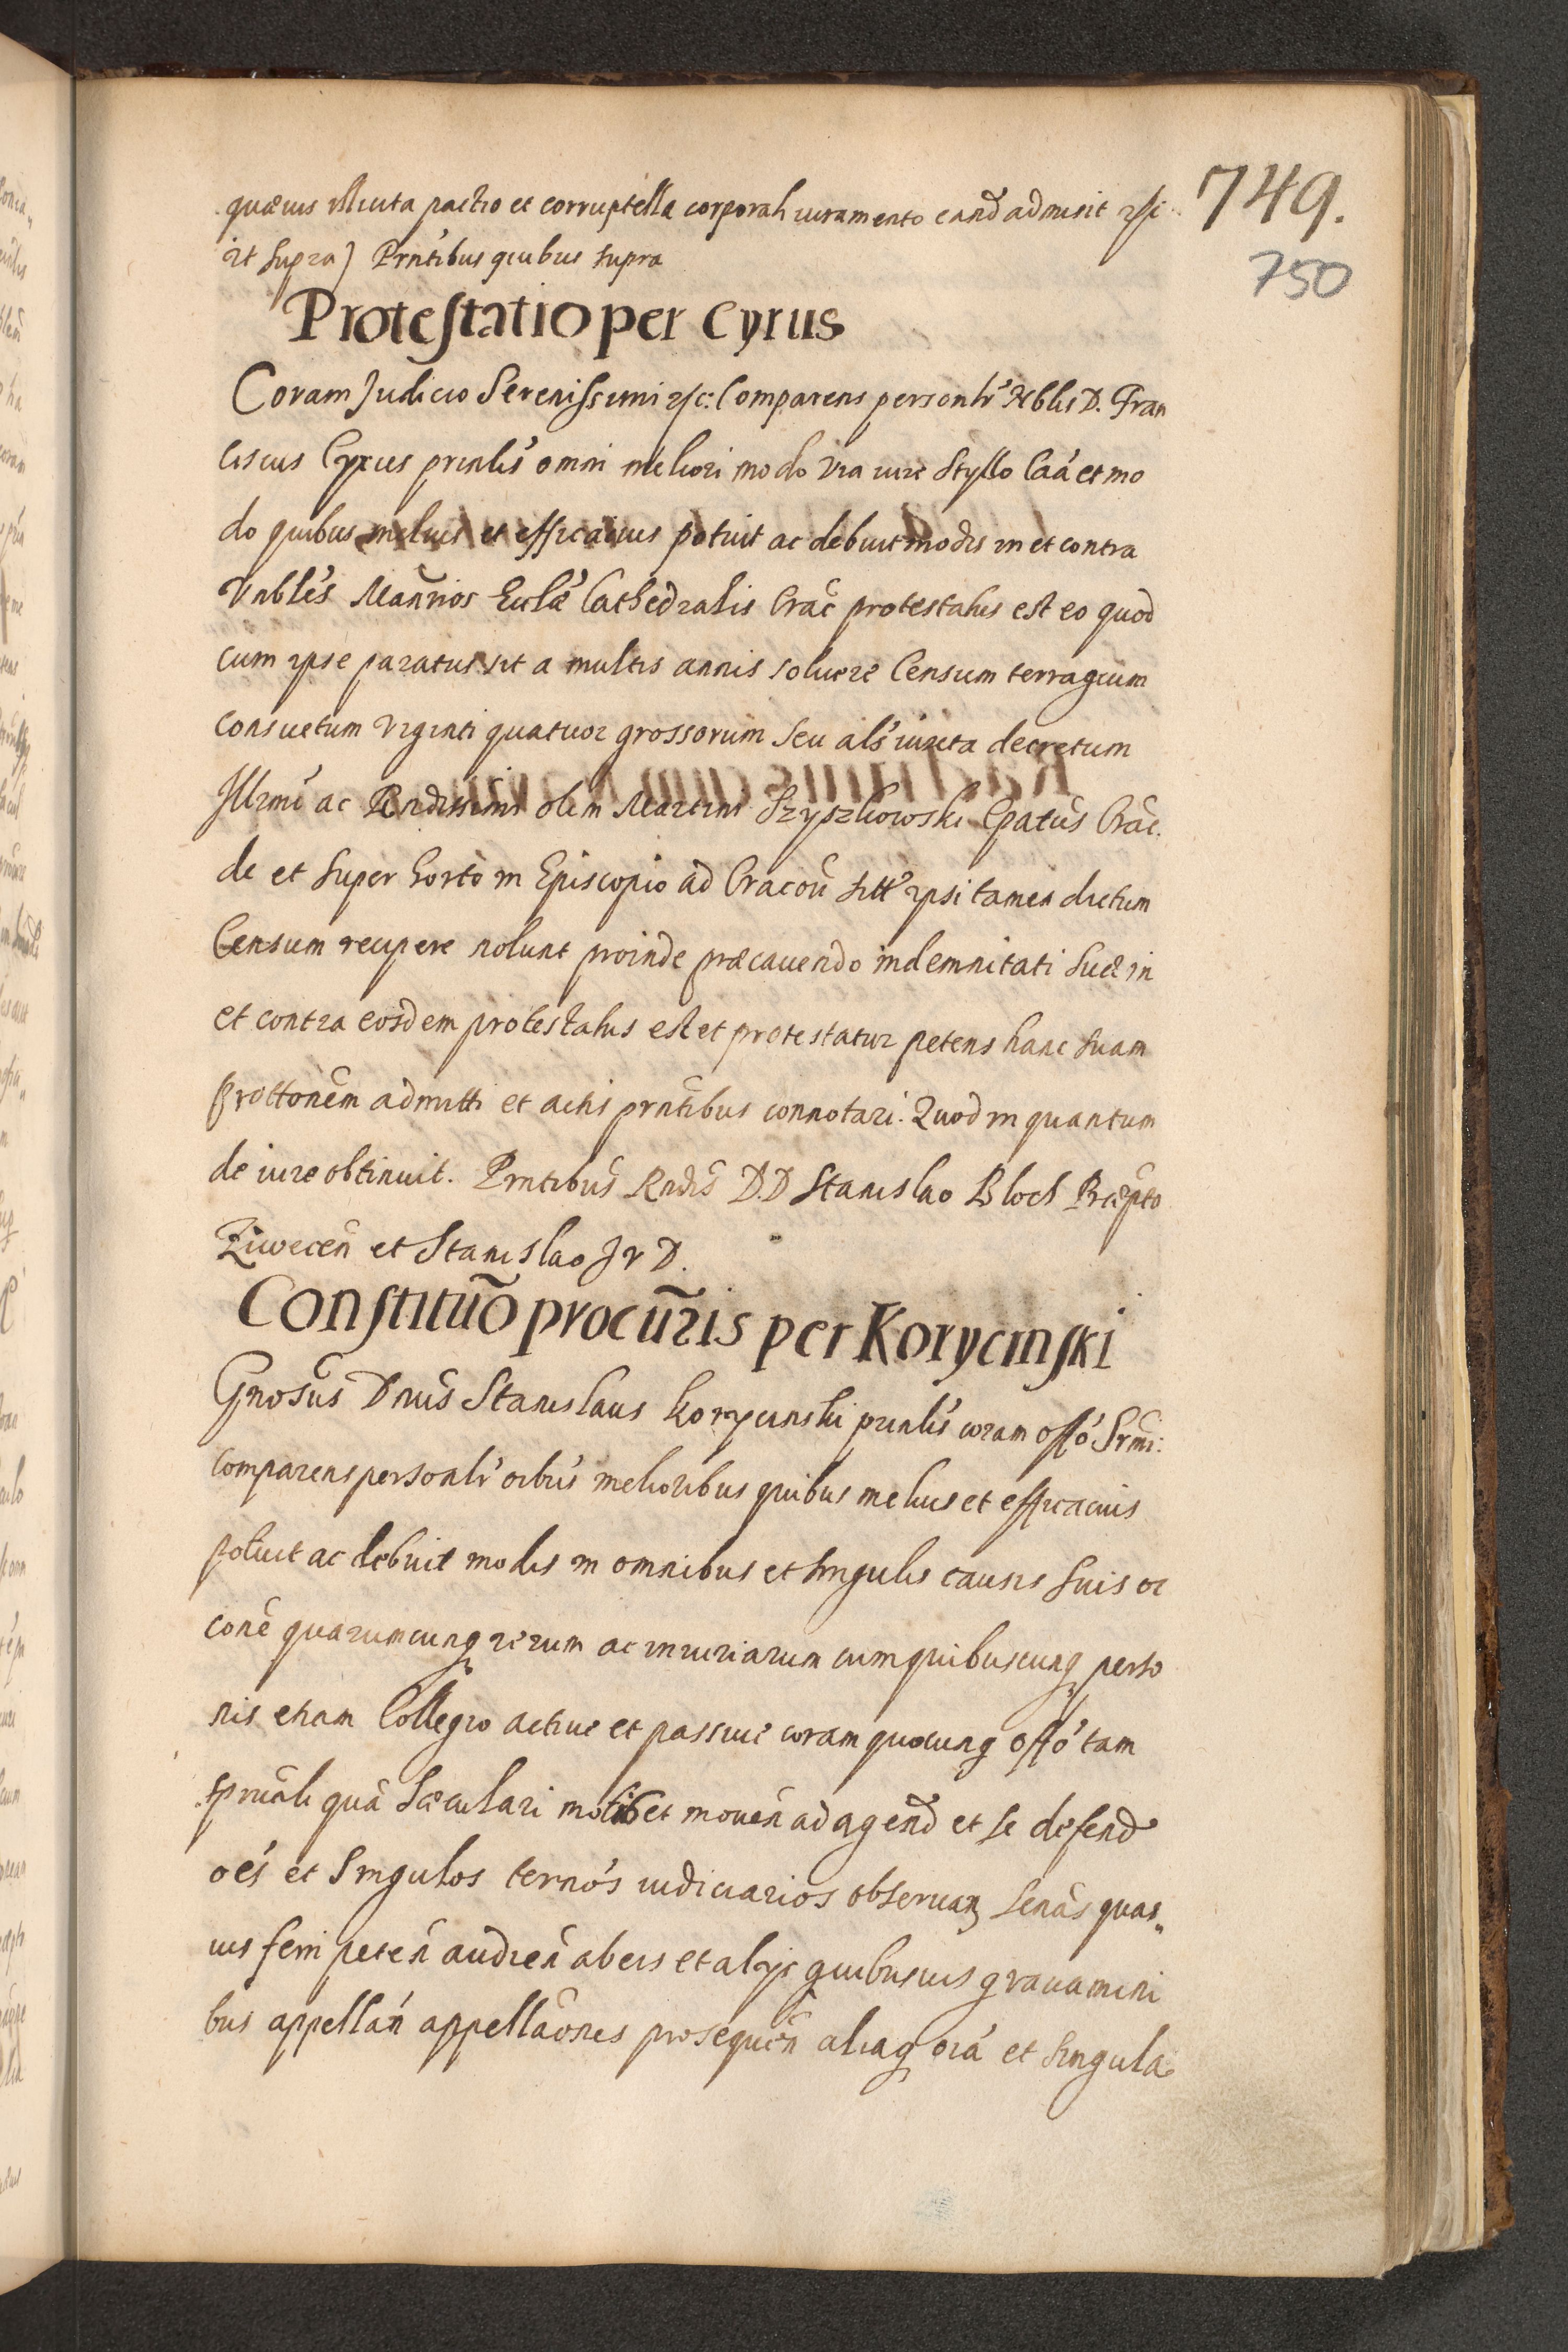 749.
750
quævis illicita pactio et corruptella corporali iuramento eand̃ admisit &c
ut supra) Prntibus quibus supra
Protestatio per Cyrus
Coram Judicio Serenissimi &c: Comparens personlr Nblis D. Fran
ciscus Cyrus prinlis omni meliori modo via iure styllo caã et mo
do quibus melius et efficacius potuit ac debuit modis in et contra
Vnbles Mañrios Ecclæ Cathedralis Crac̃ protestatus est eo quod
cum ipse paratus sit a multis annis soluere Censum terragium
consuetum viginti quatuor grossorum seu als iuxta decretum
Illrmi ac Rndissimi olim Martini Szyszkowski Epatus Crac̃.
de et super horto in Episcopio ad Cracoũ sitt ipsi tamen dictum
Censum recipere nolunt proinde præcauendo indemnitati suæ in
et contra eosdem protestatus est et protestatur petens hanc suam
prottonem admitti et actis prntibus connotari. Quod in quantum
de iure obtinuit. Prntibus Rndis D.D Stanislao Bloch Præpto
Ziwecen̄ et Stanislao J v D.
Constitutiõ procũris per Korycinski
Gnosus Dnus Stanislaus Korycinski prinlis coram offo Srmi:
comparens personlr oibus melioribus quibus melius et efficacius
potuit ac debuit modis in omnibus et singulis causis suis oc
cone quarumcunq rerum ac iniuriarum cum quibuscunq perso
nis etiam Collegio actiue et passiue coram quocunq offo tam
spruali quã sæculari motis et mouen̄ ad agend̃ et se defend̃
oẽs et singulos ternos iudiciarios obseruan̄ senãs quas„
uis ferri peten̄ audien̄ ab eis et alijs quibusuis grauamini
bus appellan̄ appellaões prosequen̄ aliaq oiã et singula